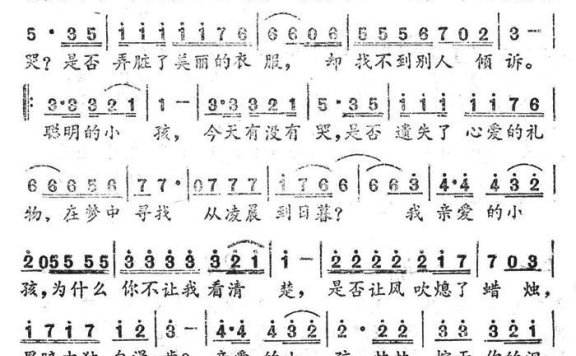 5· 35 | 1 1 1 1 1 7 6 | 6 6 0 6 | 5 5 5 6 7 0 2 | 3 —
哭？是否 弄脏了美丽的衣 服， 却 找不到别人 倾 诉。
3·3 3 2 1 | 1 — | 3·3 3 2 1 | 5· 35 | 1 1 1 1 1 7 6
聪明的小 孩， 今天有没有 哭，是否 遗失了 心爱的礼
6 6 6 5 6 | 7 7· | 0 7 7 7 | 1 7 6 6 | 6 6 3 | 4·4 4 3 2
物，在梦中 寻找 从凌晨 到日暮？ 我 亲爱 的小
2 0 5 5 5 5 | 3 3 3 3 3 2 1 | 1 — | 2 2 2 2 2 1 7 | 7 0 3
孩，为什么 你不让我 看清 楚， 是否让风 吹熄了 蜡 烛，
1 7 1 7 1 2 | 3 — | 4·4 4 3 2 | 2· 2 2 | 3 3 3 2 1